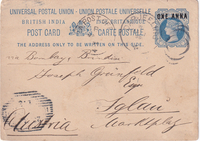 UNIVERSAL POSTAL UNION – UNION POSTALE UNIVERSELLE
BRITISH INDIA
BRITANNIQUE
ONE ANNA
POST CARD
CARTE POSTALE
THE ADDRESS ONLY TO BE WRITTEN ON THIS SIDE
via Bombay Brindisi
Joseph
Esq
Iglau
Austria